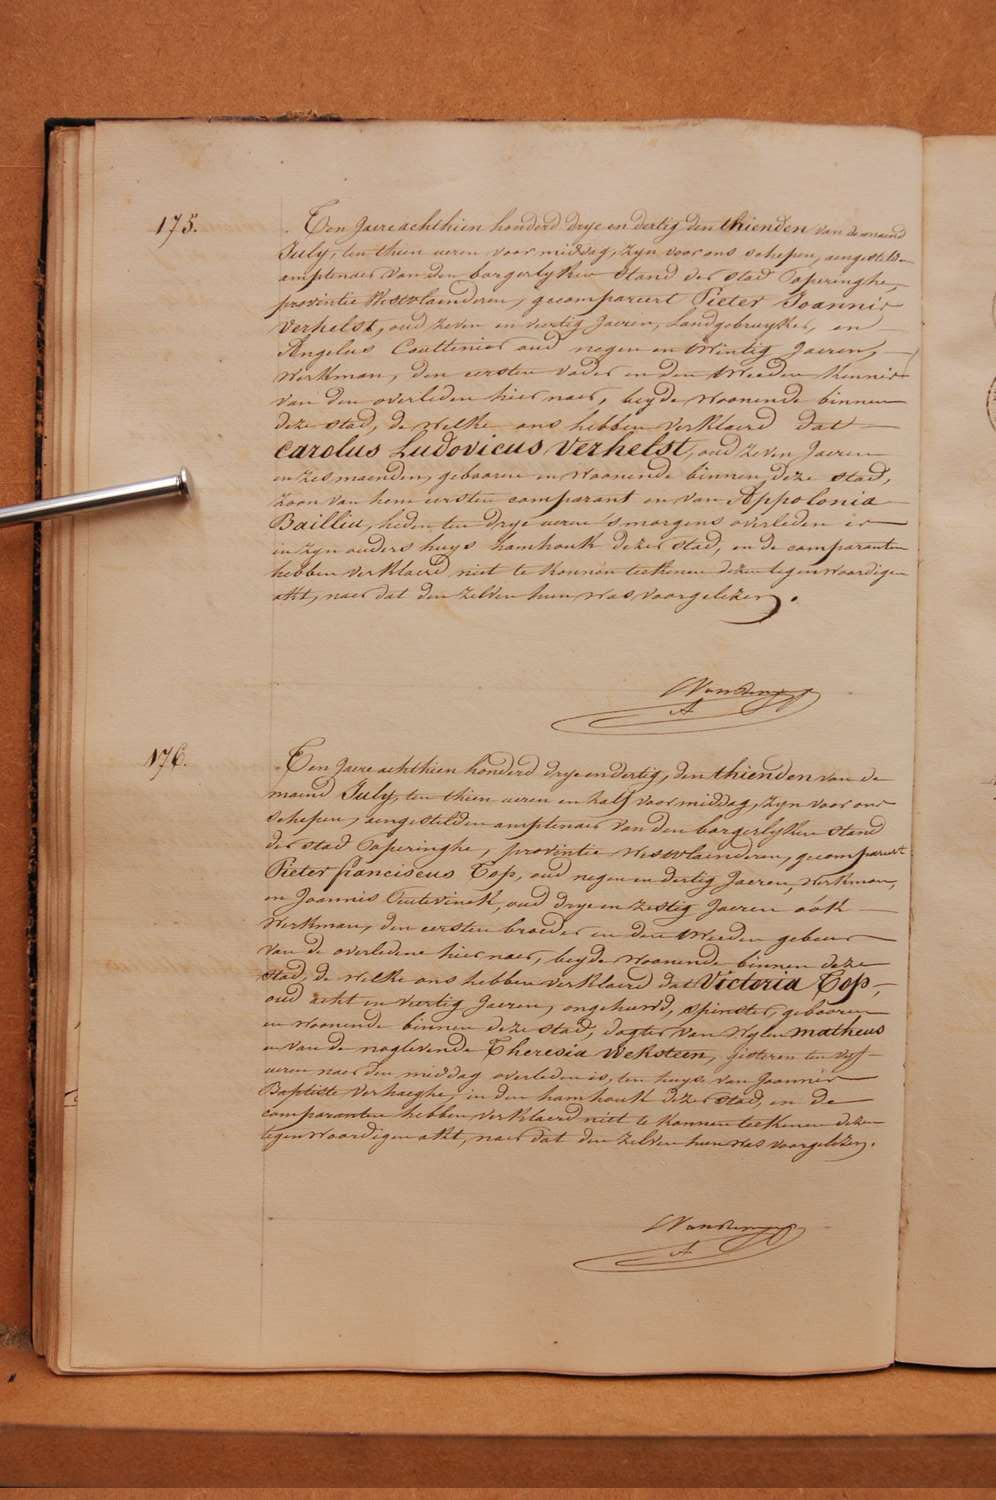 175.
Ten Jaere achthien honderd drye en dertig den thienden van de maend
July, ten thien ueren voor middag, zyn voor ons schepen, aengestelde
amptenaer van den borgerlyken stand der stad Poperinghe,
provintie Westvlaenderen, gecompareert Pieter Joannis
Verhelst, oud zeven en veertig Jaeren, Landgebruyker, en
Angelus Couttenier oud negen en twintig Jaeren,
Werkman, den eersten vader en den tweeden kennis
van den overleden hier naer, beyde woonende binnen
deze stad, de welke ons hebben verklaerd dat
Carolus Ludovicus Verhelst, oud zeven Jaeren
en zes maenden, gebooren en woonende binnen deze stad,
zoon van hem eersten comparant en van Appolonia
Bailliu, heden ten drye ueren 's morgens overleden is
in zyn ouders huys hamhouk dezer stad, en de comparanten
hebben verklaerd niet te konnen teekenen dezen tegenwoordigen
akt, naer dat den zelven hun was voorgelezen.
A
176.
Ten Jaere achthien honderd drye en dertig, den thienden van de
maend July, ten thien ueren en half voor middag, zyn voor ons
schepen, aengestelden amptenaer van den borgerlyken stand
der stad Poperinghe, provintie Westvlaenderen, gecompareert
Pieter franciscus Top, oud negen en dertig Jaeren, Werkman,
en Joannis, oud drye en zestig Jaeren oók
Werkman, den eersten broeder en den tweeden gebuer
van de overledene hier naer, beyde woonende binnen deze
stad, de welke ons hebben verklaerd dat Victoria Top,
oud acht en veertig Jaeren, ongehuwd, spinster, gebooren
en woonende binnen deze stad, dogter van wylen matheus
en van de naglevende Theresia Weksteen, gisteren ten vyf
ueren naer den middag overleden is, ten huyse van Joannis
Baptiste Verhaeghe, in den hamhouk dezer stad, en de
comparanten hebben verklaerd niet te konnen teekenen dezen
tegenwoordigen akt, naer dat den zelven hun was voorgelezen.
A